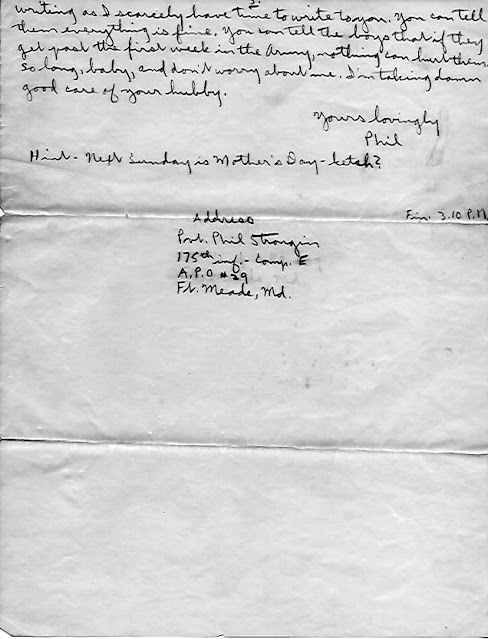 2.
writing as I scarcely have time to write to you. You can tell
them everything is fine. You can tell the boys that if they
get past the first week in the Army, nothing can hurt them.
So long, baby, and don't worry about me. I'm taking damn
good care of your hubby.
Yours lovingly
Phil
Hint - Next Sunday is Mother's Day - ketch?
Fri. 3.10 P.M.
Address
Pvt. Phil Strongin
175th inf. - Comp. E
A.P.O #29
Ft. Meade, Md.